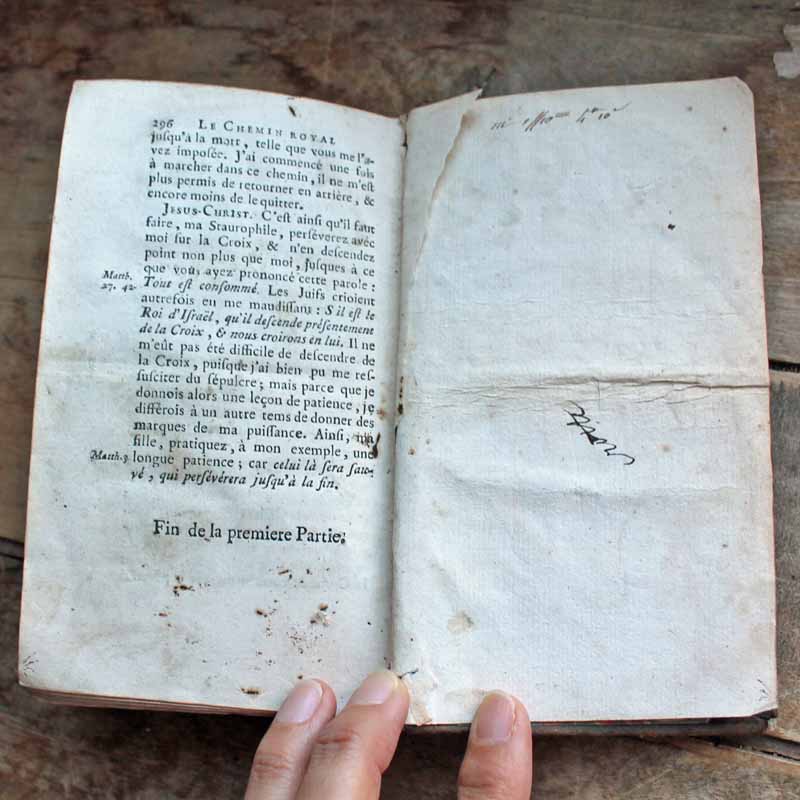 296 LE CHEMIN ROYAL
jusqu'à la mort, telle que vous me l'a-
vez imposée. J'ai commencé une fois
à marcher dans ce chemin, il ne m'est
plus permis de retourner en arrière, &
encore moins de le quitter.
JESUS-CHRIST. C'est ainsi qu'il faut
faire, ma Staurophile, persévérez avec
moi sur la Croix, & n'en descendez
point non plus que moi, jusques à ce
que vous ayez prononcé cette parole :
Matth. 27. 42.
Tout est consommé. Les Juifs crioient
autrefois en me maudissant : S'il est le
Roi d'Israël, qu'il descende présentement
de la Croix, & nous croirons en lui. Il ne
m'eût pas été difficile de descendre de
la Croix, puisque j'ai bien pu me res-
susciter du sépulcre ; mais parce que je
donnois alors une leçon de patience, je
différois à un autre tems de donner des
marques de ma puissance. Ainsi, ma
fille, pratiquez, à mon exemple, une
Matth.
longue patience ; car celui là sera sau-
vé, qui persévérera jusqu'à la fin.
Fin de la premiere Partie.